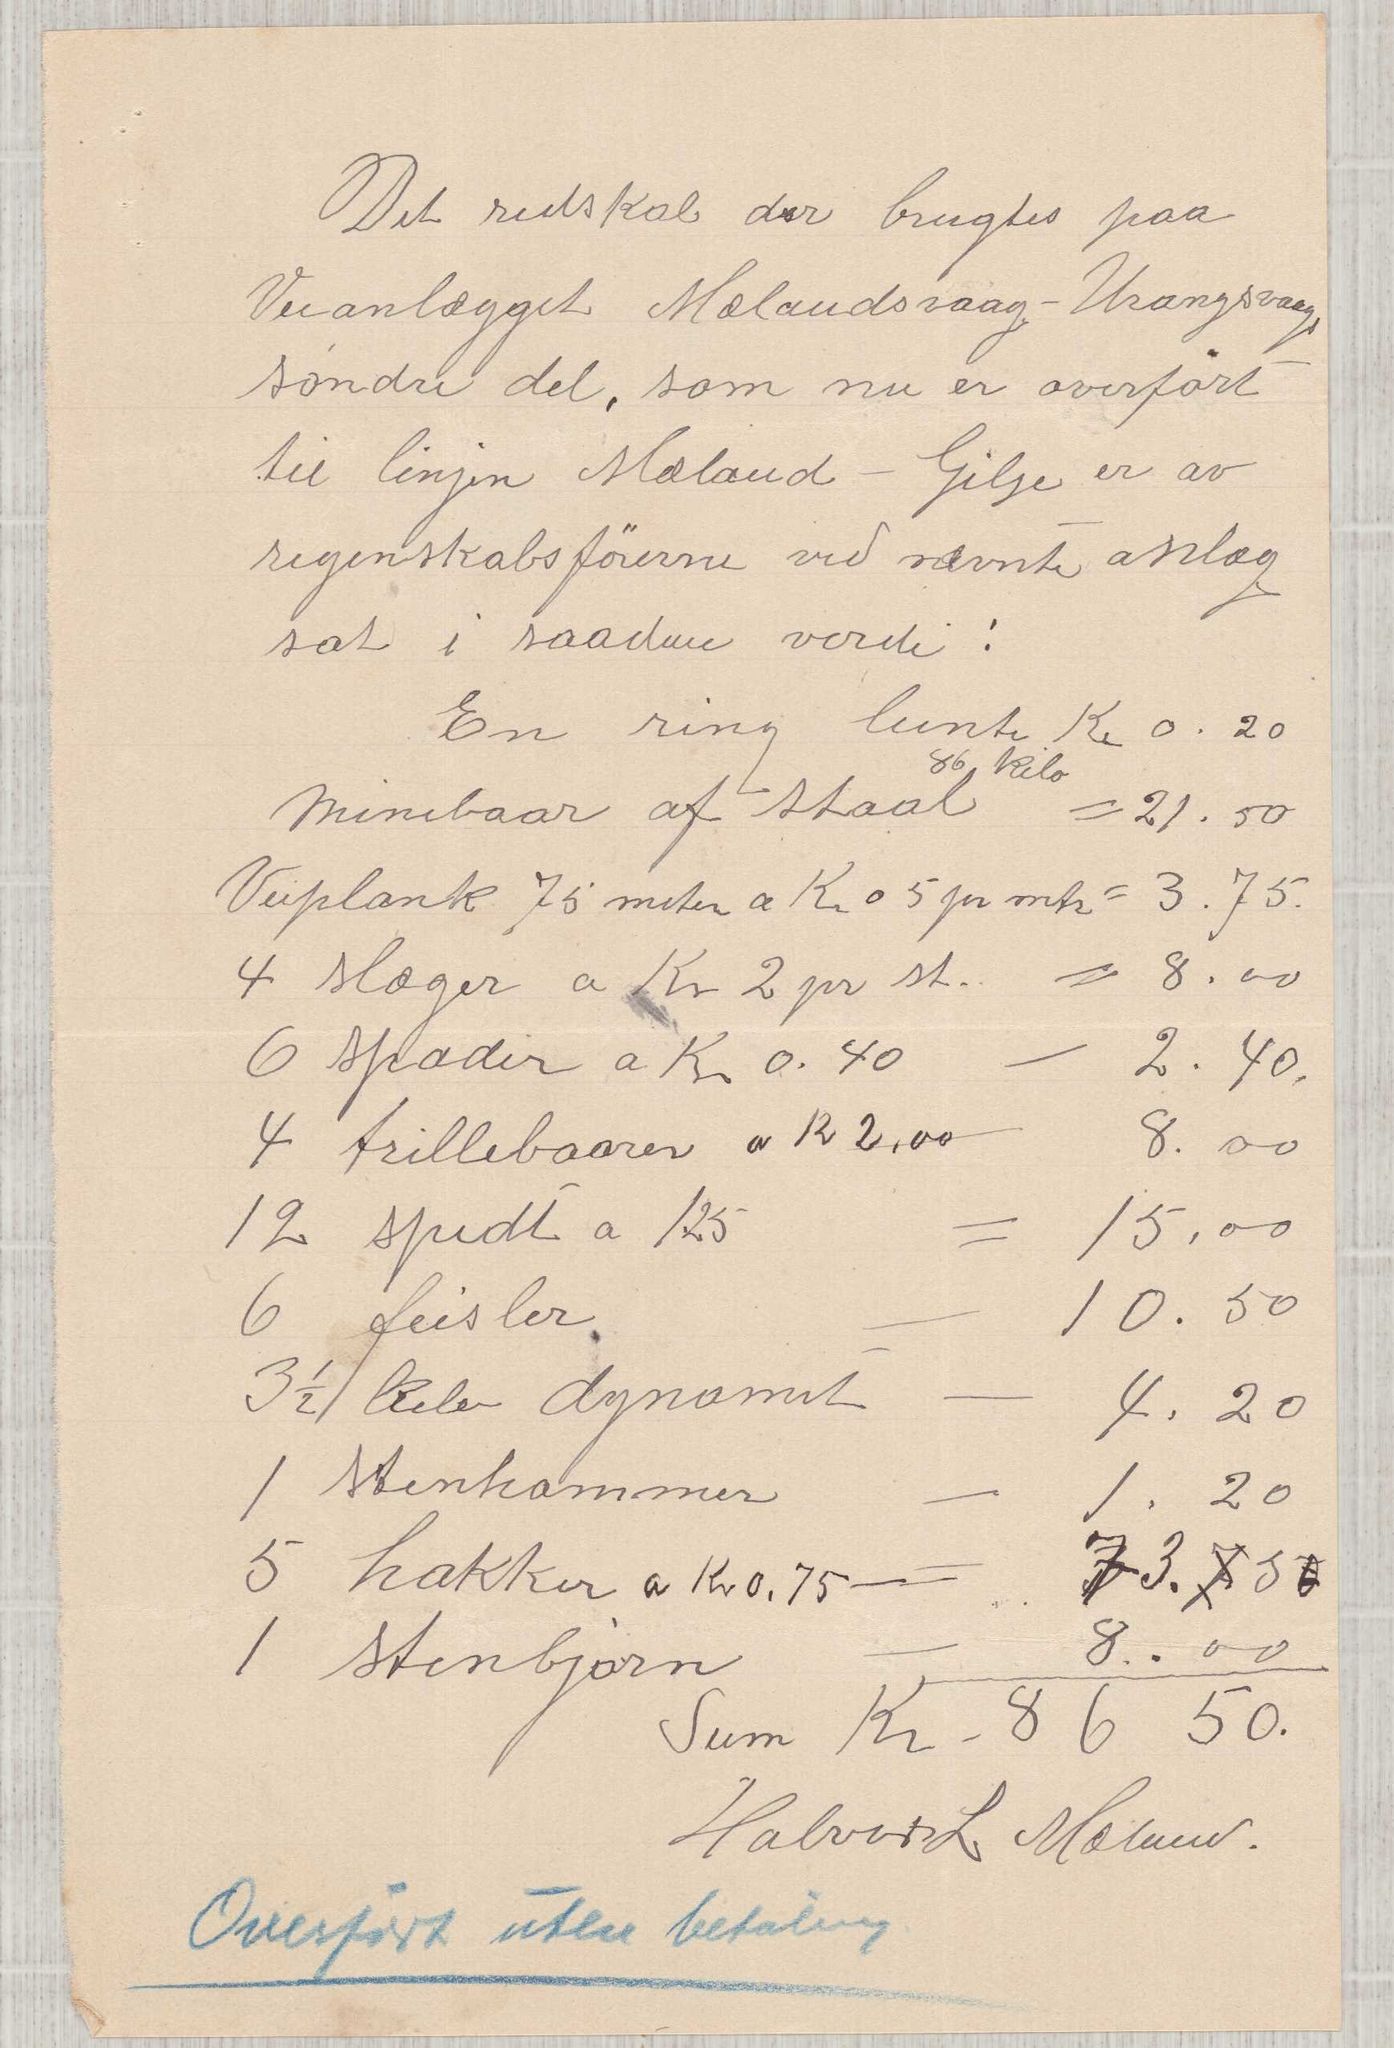 Det redskab der brugtes paa
Veianlægget Mælandsvaag - Urangsvaag,
söndre del, som nu er overfört
til linjen Mæland - Gilje er av
regenskabsförerne ved nævnte anlæg
sat i saadane verdi:
En ring lunte Kr 0.20
86 kilo
Minebaar af staal = 21.50
Veiplank 75 meter a Kr 0 5 pr mtr = 3.75.
4 slæger a Kr 2 pr st. = 8.00
6 spader a Kr 0.40 — 2.40.
4 trillebaarer a K 2,00 — 8.00
12 spedt a 125 = 15,00
6 feisler. — 10.50
3½ kilo dynamit — 4.20
1 stenhammer — 1.20
5 hakker a Kr 0,75 — = 3.75
1 stenbjörn — 8.00
Sum Kr - 86 50.
Halvor L Mæland.
Overfört uten betaling